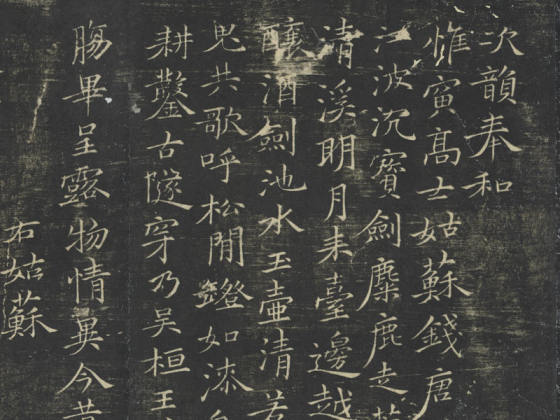 次韻奉和
惟寅高士姑蘇錢唐
江波沉寶劍麋鹿走
清溪明月來臺邊越
釀酒劍池水玉壺清若
兕共歌呼松閒鐙如漆
耕鑿古隧穿乃吳桓王
膓畢呈露物情異今
右姑蘇